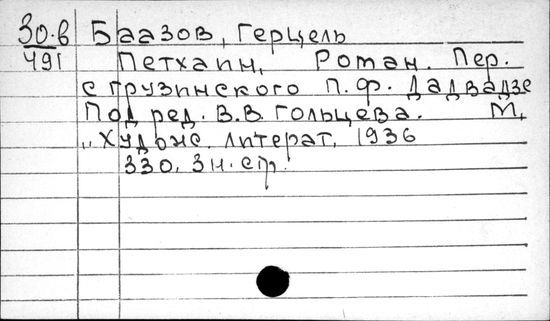 30-в Баазов, Герцель
491 Петхаин, Роман. Пер.
с грузинского П.Ф. Дадвадзе
Под ред. В.В. Гольцева. М,
"Худож. литерат, 1936
330, 3 н. стр.